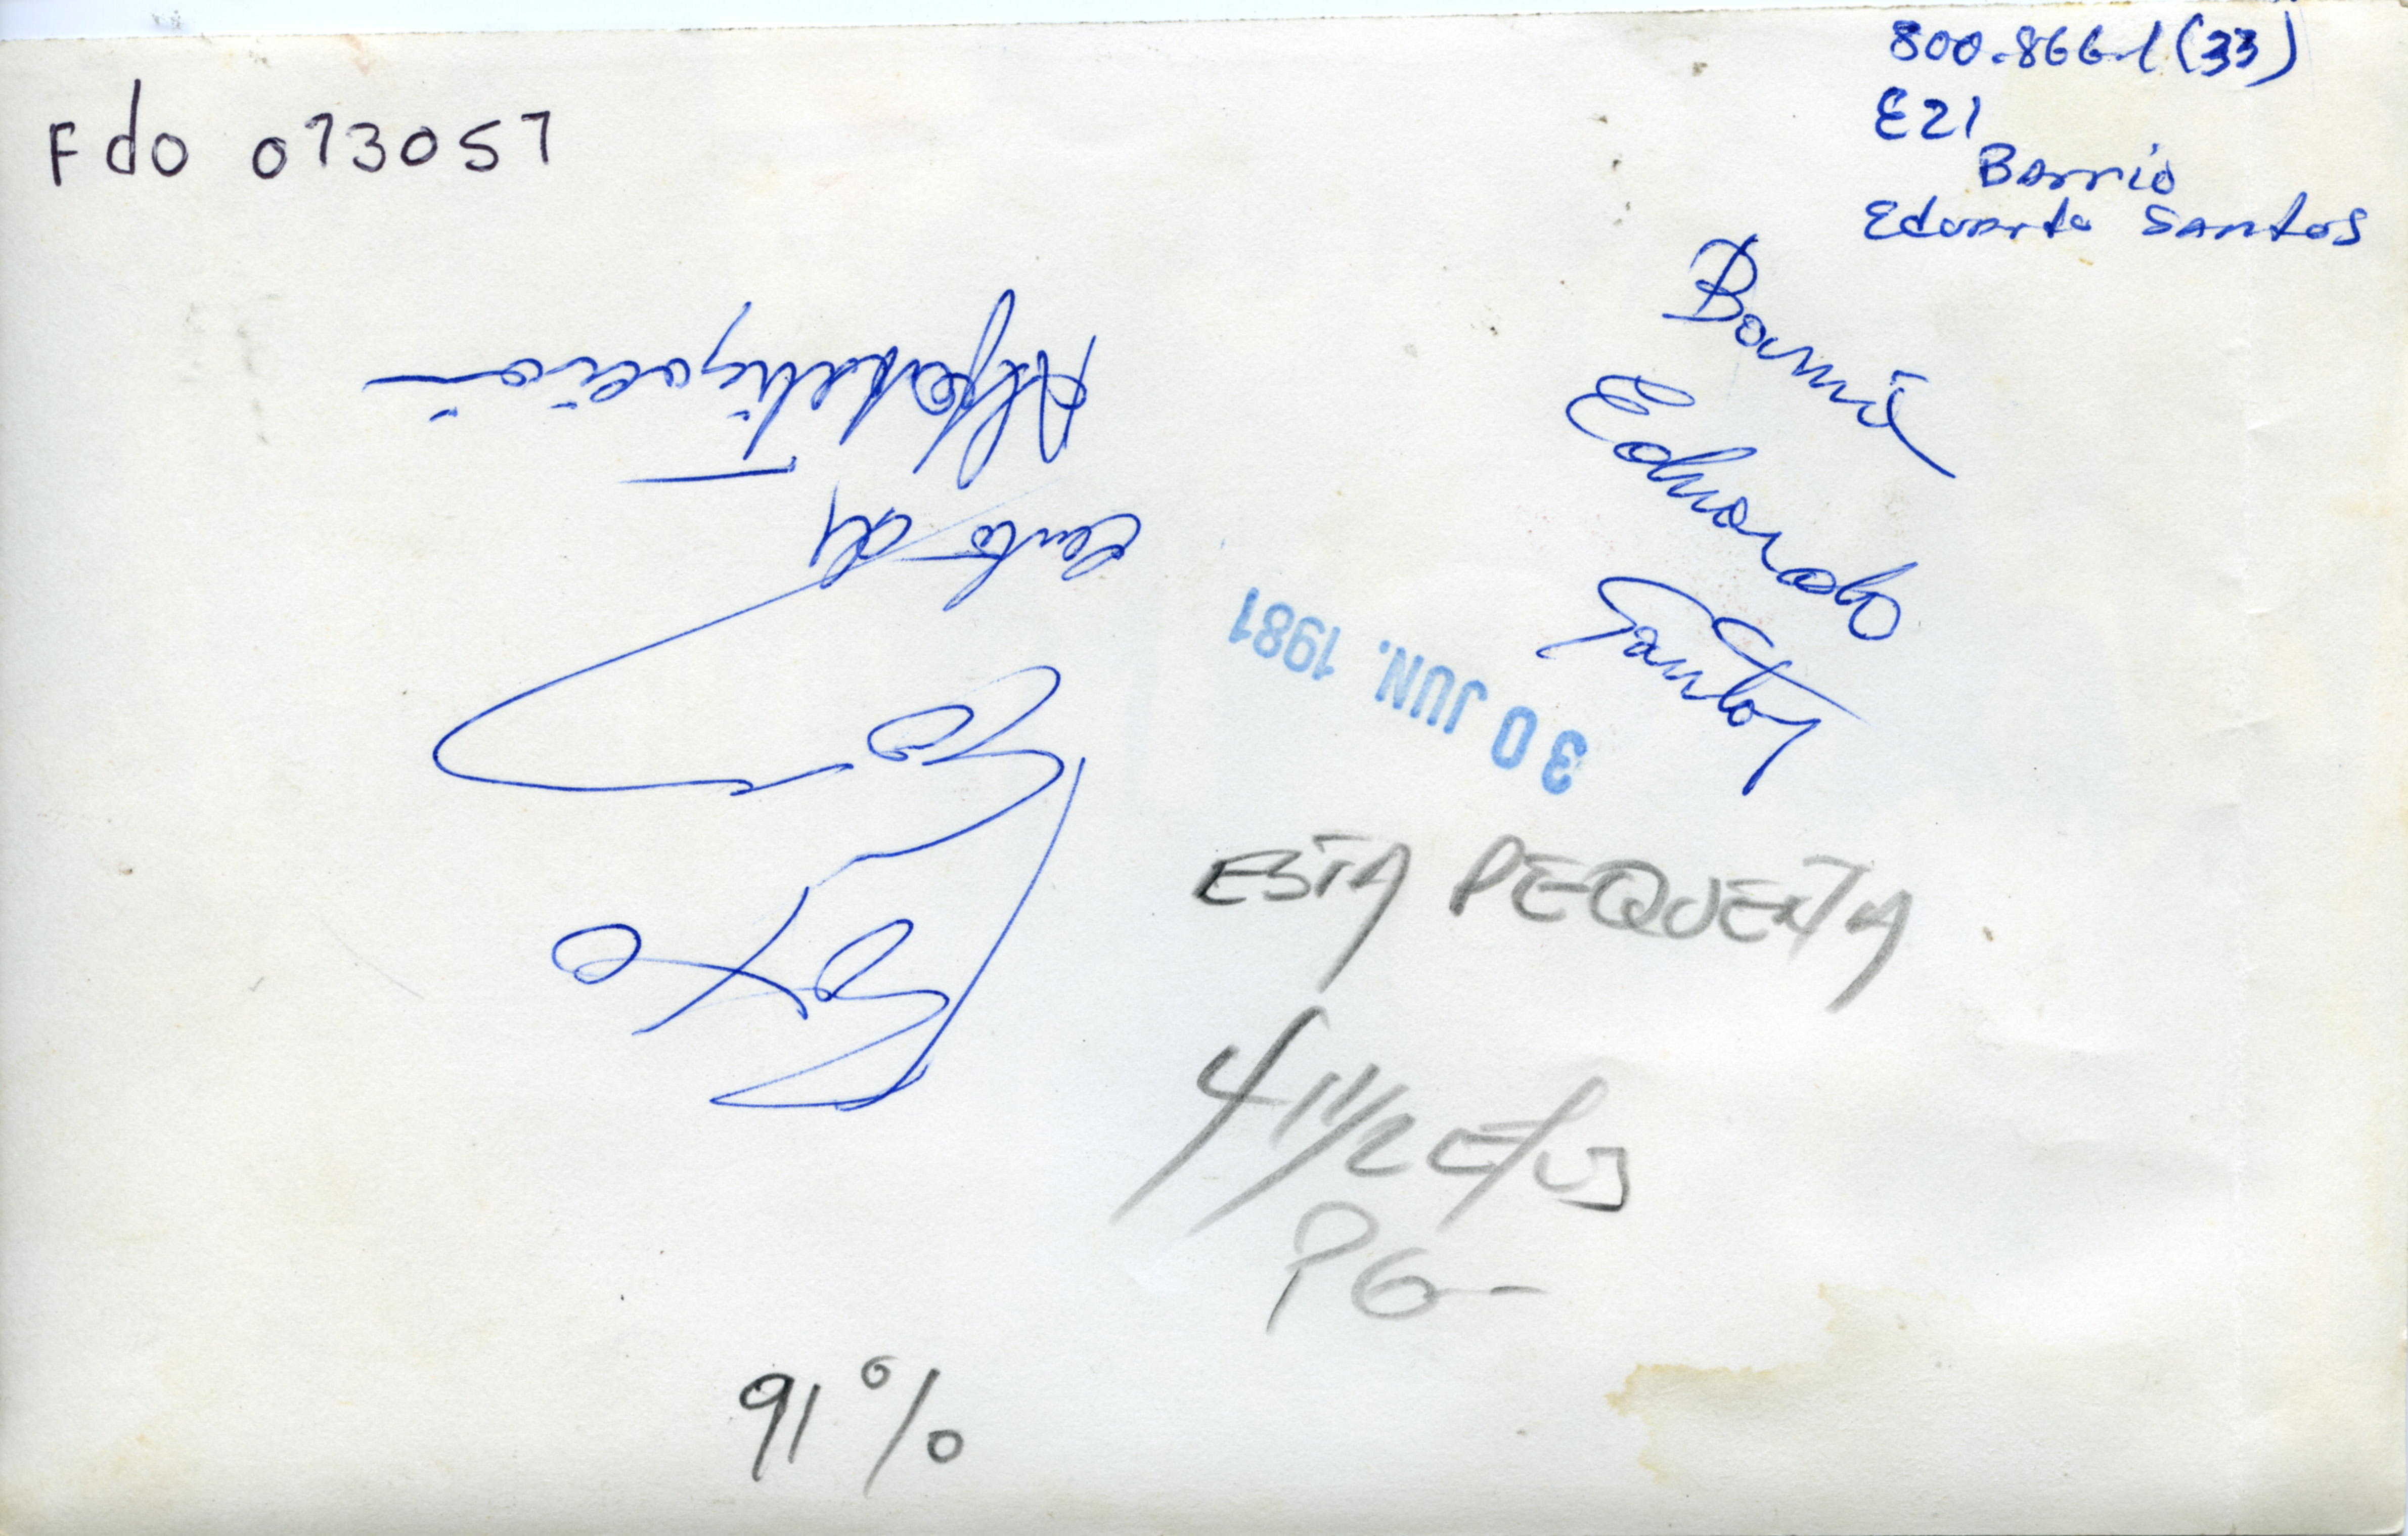 Fdo 073057
800.866.1(33)
E21
Barrio
Eduardo Santos
Barrio
Eduardo
Santos
30 JUN. 1981
de
Alfabetización
ESTA PEQUEÑA
4 1/2
PG-
91%